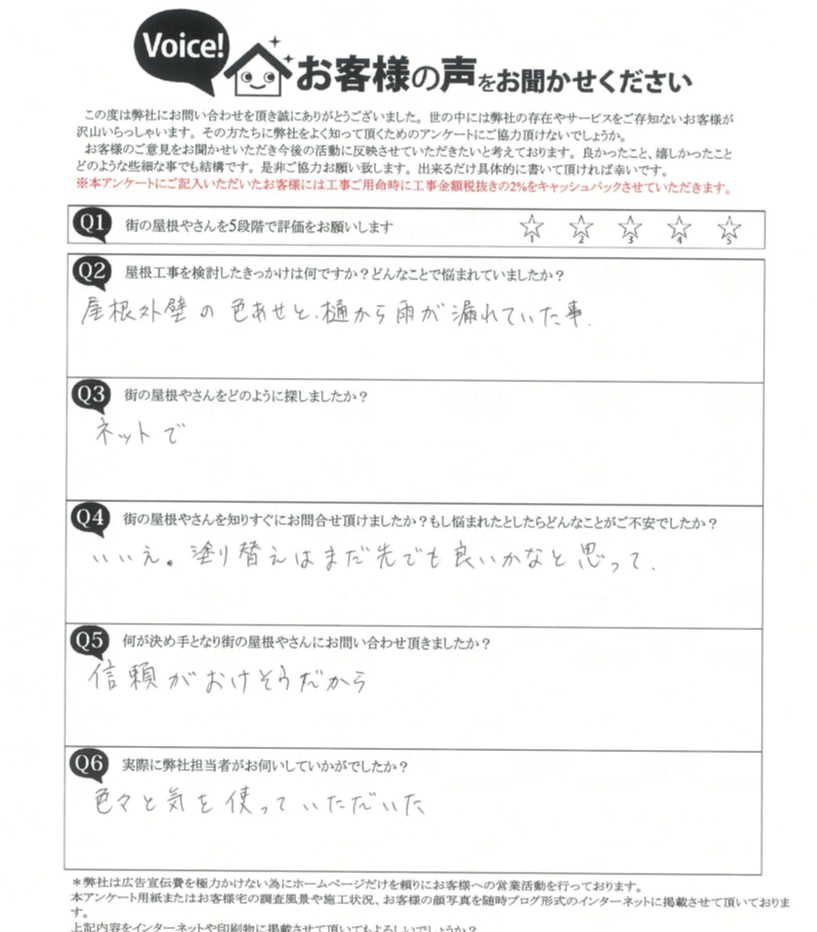 Voice!
お客様の声をお聞かせください
この度は弊社にお問い合わせを頂き誠にありがとうございました。世の中には弊社の存在やサービスをご存知ないお客様が
沢山いらっしゃいます。その方たちに弊社をよく知って頂くためのアンケートにご協力頂けないでしょうか。
お客様のご意見をお聞かせいただき今後の活動に反映させていただきたいと考えております。良かったこと、嬉しかったこと
どのような些細な事でも結構です。是非ご協力お願い致します。出来るだけ具体的に書いて頂ければ幸いです。
※本アンケートにご記入いただいたお客様には工事ご用命時に工事金額税抜きの2%をキャッシュバックさせていただきます。
Q1 街の屋根やさんを5段階で評価をお願いします
1 2 3 4 5
Q2 屋根工事を検討したきっかけは何ですか？どんなことで悩まれていましたか？
屋根外壁の色あせと、樋から雨が漏れていた事.
Q3 街の屋根やさんをどのように探しましたか？
ネットで
Q4 街の屋根やさんを知りすぐにお問合せ頂けましたか？もし悩まれたとしたらどんなことがご不安でしたか？
いいえ。塗り替えはまだ先でも良いかなと思って.
Q5 何が決め手となり街の屋根やさんにお問い合わせ頂きましたか？
信頼がおけそうだから
Q6 実際に弊社担当者がお伺いしていかがでしたか？
色々と気を使っていただいた
＊弊社は広告宣伝費を極力かけない為にホームページだけを頼りにお客様への営業活動を行っております。
本アンケート用紙またはお客様宅の調査風景や施工状況、お客様の顔写真を随時ブログ形式のインターネットに掲載させて頂いておりま
す。
上記内容をインターネットや印刷物に掲載させて頂いてもよろしいでしょうか？